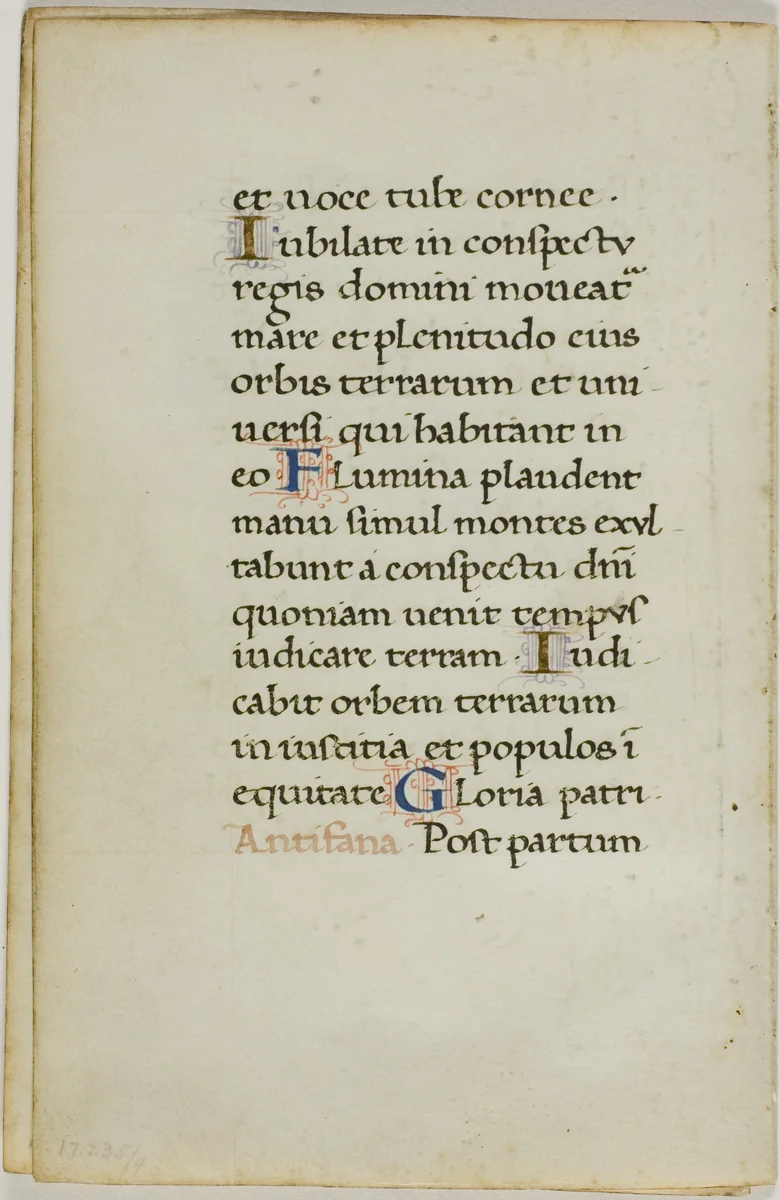 et uoce tube cornee ·
Iubilate in conspectv
regis domini moueat᷑
mare et plenitudo eius
orbis terrarum et uni-
uersi qui habitant in
eo FLumina plaudent
manu simul montes exvl-
tabunt a conspectu dn̄i
quoniam uenit tempvs
iudicare terram · Iudi-
cabit orbem terrarum
in iustitia et populos ī
equitate GLoria patri·
Antifana · Post partum
17.235/4